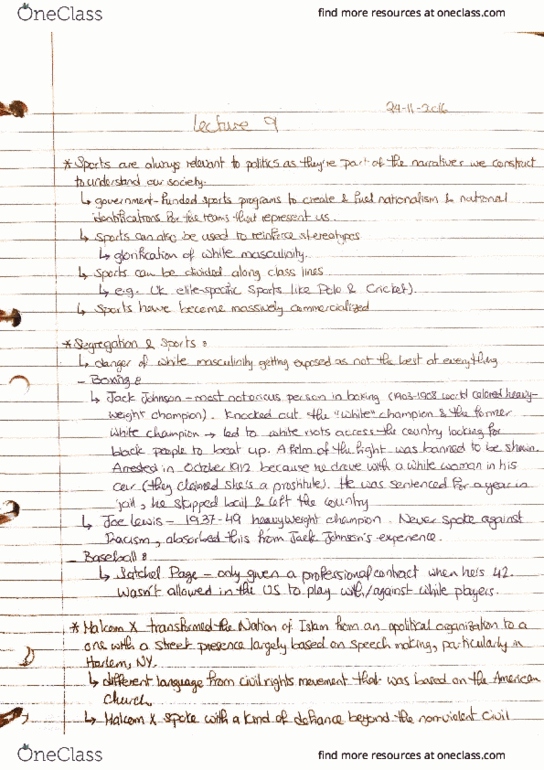 OneClass
find more resources at oneclass.com
24-11-2016
Lecture 9
* Sports are always relevant to politics as they're part of the narratives we construct
to understand our society.
↳ government-funded sports programs to create & fuel nationalism & national
identifications for the teams that represent us.
↳ sports can also be used to reinforce stereotypes
↳ glorification of white masculinity.
↳ sports can be divided along class lines
↳ e.g. UK elite-specific sports like Polo & Cricket).
↳ sports have become massively commercialized
* Segregation & Sports:
↳ danger of white masculinity getting exposed as not the best at everything
- Boxing:
↳ Jack Johnson - most notorious person in boxing (1903-1908 world colored heavy-
weight champion). Knocked out the "white" champion & the former
white champion → led to white riots across the country looking for
black people to beat up. A film of the fight was banned to be shown.
Arrested in October 1912 because he drove with a white woman in his
car (they claimed she's a prostitute). He was sentenced for a year in
jail, he skipped bail & left the country
↳ Joe Lewis - 1937-49 heavyweight champion. Never spoke against
racism, absorbed this from Jack Johnson's experience.
- Baseball:
↳ Satchel Page - only given a professional contract when he's 42.
Wasn't allowed in the US to play with/against white players.
* Malcom X transformed the Nation of Islam from an apolitical organization to a
one with a street presence largely based on speech making, particularly in
Harlem, NY.
↳ different language from civil rights movement that was based on the American
Church.
↳ Malcom X spoke with a kind of defiance beyond the nonviolent civil
OneClass
find more resources at oneclass.com